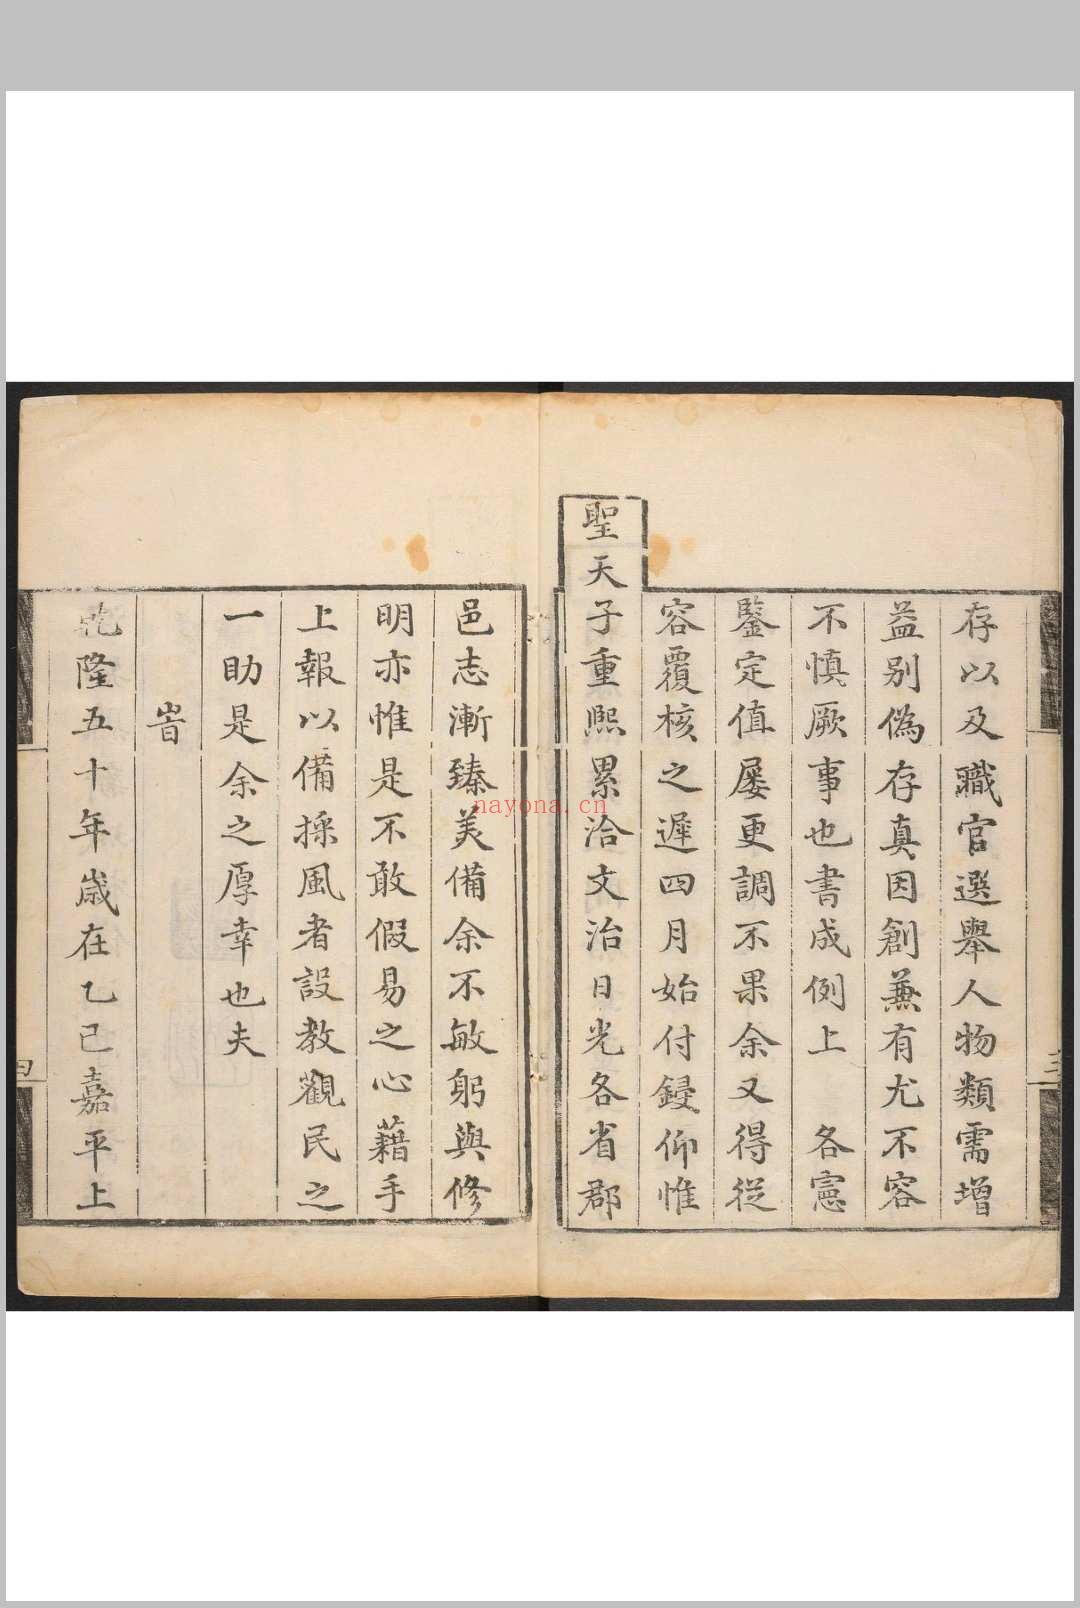 存以及職官選舉人物類需增
益别偽存真因創兼有尤不容
不慎厥事也書成例上 各憲
鑒定值屡更調不果余又得從
容覆核之遲四月始付鋟仰惟
聖天子重熙累洽文治日光各省郡
邑志漸臻美備余不敏躬與修
明亦惟是不敢假易之心藉手
上報以備採風者設教觀民之
一助是余之厚幸也夫
旹
乾隆五十年歲在乙巳嘉平上
三
四
nayona.cn